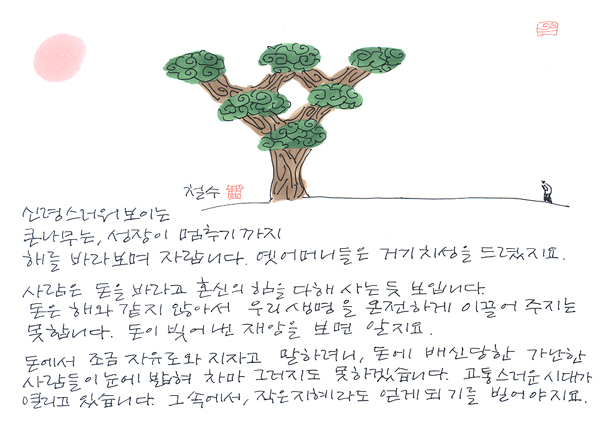 철수
신령스러워 보이는
큰나무는, 성장이 멈추기까지
해를 바라보며 자랍니다. 옛어머니들은 거기 치성을 드렸지요.
사람은 돈을 바라고 혼신의 힘을 다해 사는 듯 보입니다.
돈은 해와 같지 않아서 우리 생명을 온전하게 이끌어 주지는
못합니다. 돈이 빚어낸 재앙을 보면 알지요.
돈에서 조금 자유로와지자고 말하려니, 돈에 배신당한 가난한
사람들이 눈에 밟혀 차마 그러지도 못하겠습니다. 고통스러운 시대가
열리고 있습니다. 그 속에서, 작은 지혜라도 얻게 되기를 빌어야지요.